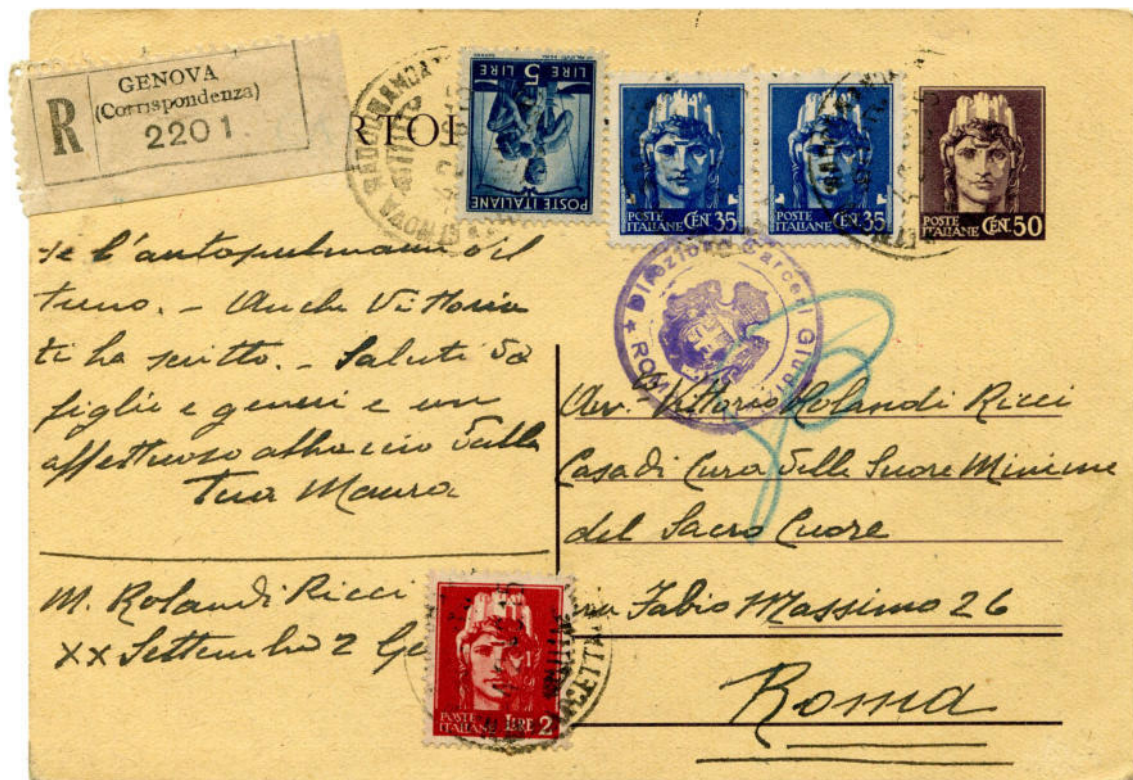 GENOVA
(Corrispondenza)
R 2201
RTOL
LIRE 5 LIRE
POSTE ITALIANE
POSTE ITALIANE CEN. 35
POSTE ITALIANE CEN. 35
POSTE ITALIANE CEN. 50
te l'autopulmann o il
treno. - Anche Vittoria
ti ha scritto. - Saluti da
figlie e generi e un
affettuoso abbraccio dalla
Tua Maura
M. Rolandi Ricci
XX Settembre 2 Ge
POSTE ITALIANE LIRE 2
Direzione Carceri Giudi
ROM
Avv. Vittorio Rolandi Ricci
Casa di Cura delle Suore Minime
del Sacro Cuore
via Fabio Massimo 26
Roma